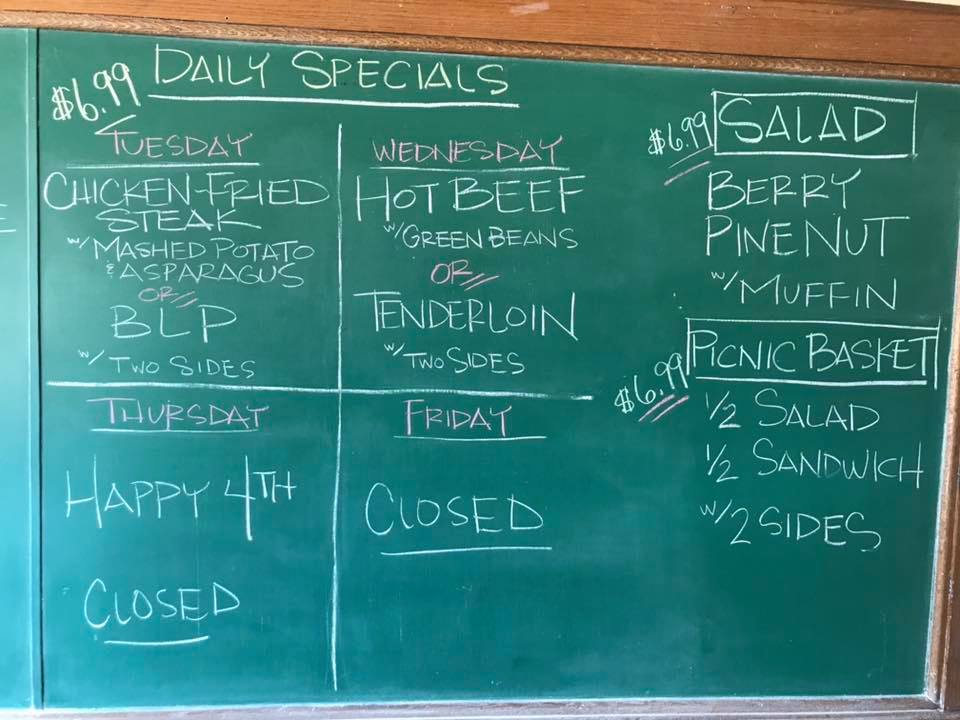 $6.99 DAILY SPECIALS
TUESDAY
CHICKEN-FRIED
STEAK
w/ MASHED POTATO
& ASPARAGUS
OR
BLP
w/ TWO SIDES
WEDNESDAY
HOT BEEF
w/ GREEN BEANS
OR
TENDERLOIN
w/ TWO SIDES
THURSDAY
HAPPY 4TH
CLOSED
FRIDAY
CLOSED
$6.99 SALAD
BERRY
PINE NUT
w/ MUFFIN
PICNIC BASKET
$6.99
1/2 SALAD
1/2 SANDWICH
w/ 2 SIDES